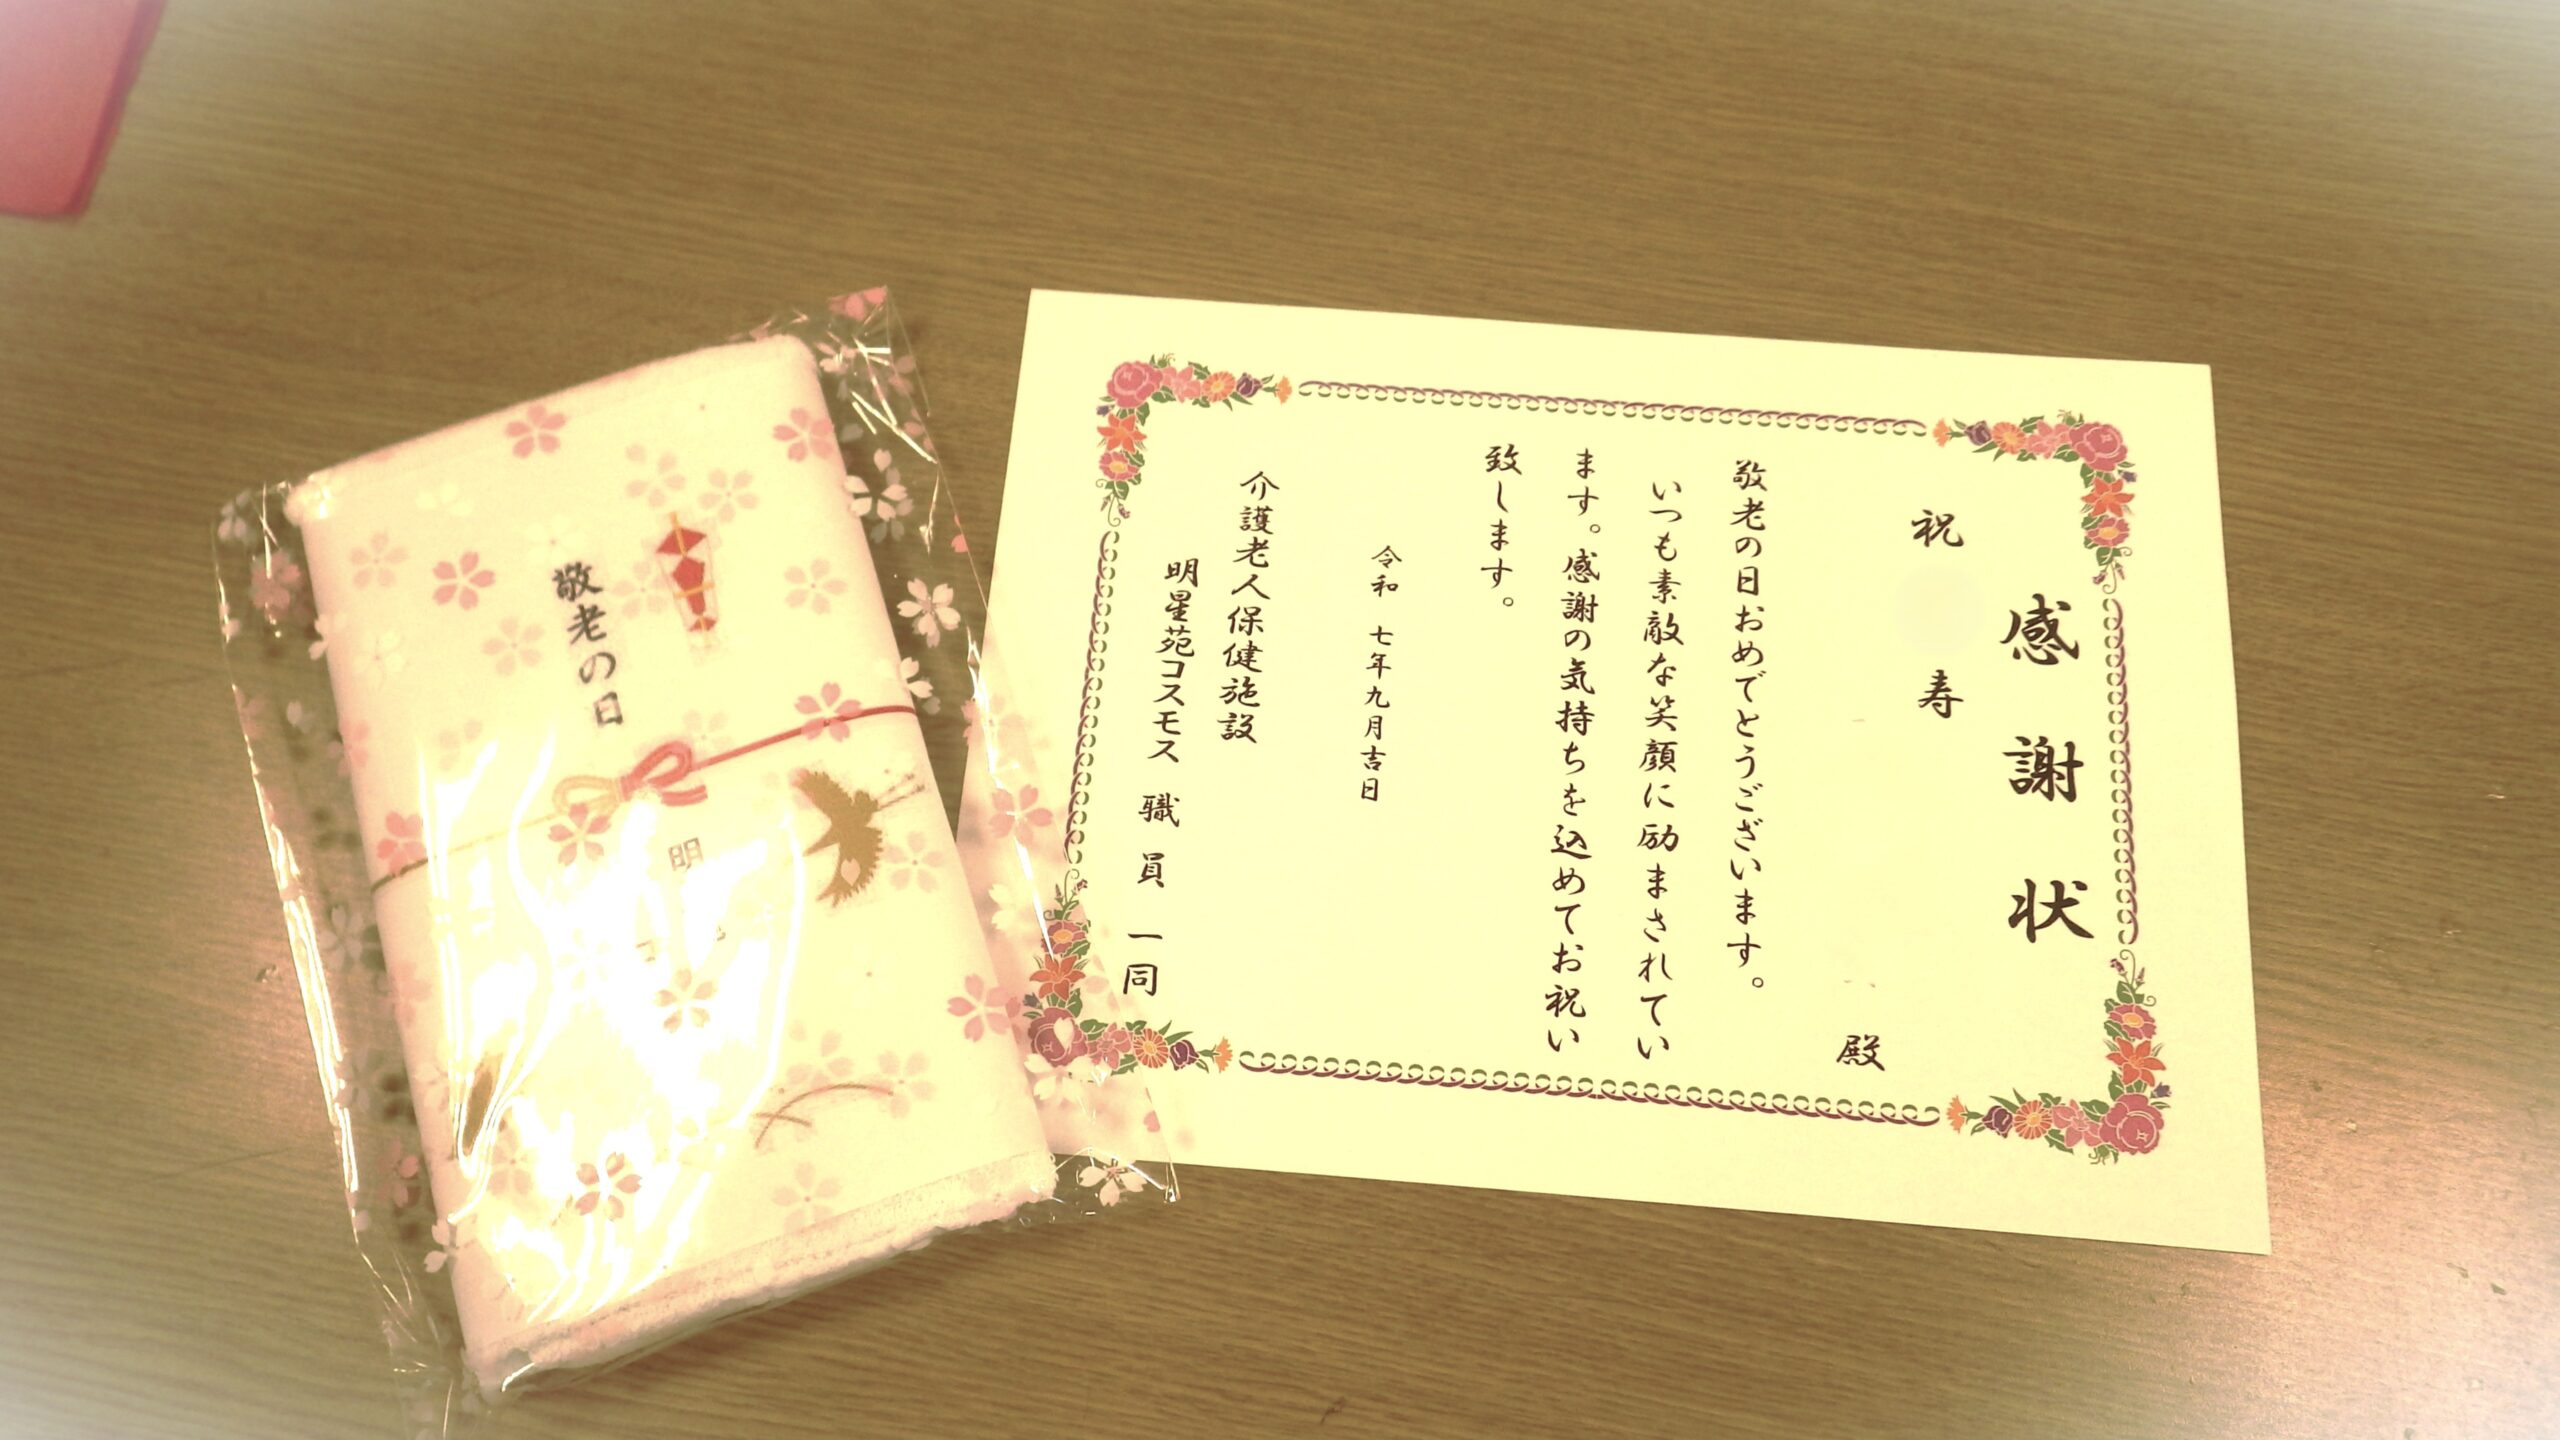 感謝状
祝 寿
殿
敬老の日おめでとうございます。
いつも素敵な笑顔に励まされてい
ます。感謝の気持ちを込めてお祝い
致します。
令和 七年九月吉日
介護老人保健施設
明星苑コスモス 職員一同
敬老の日
明